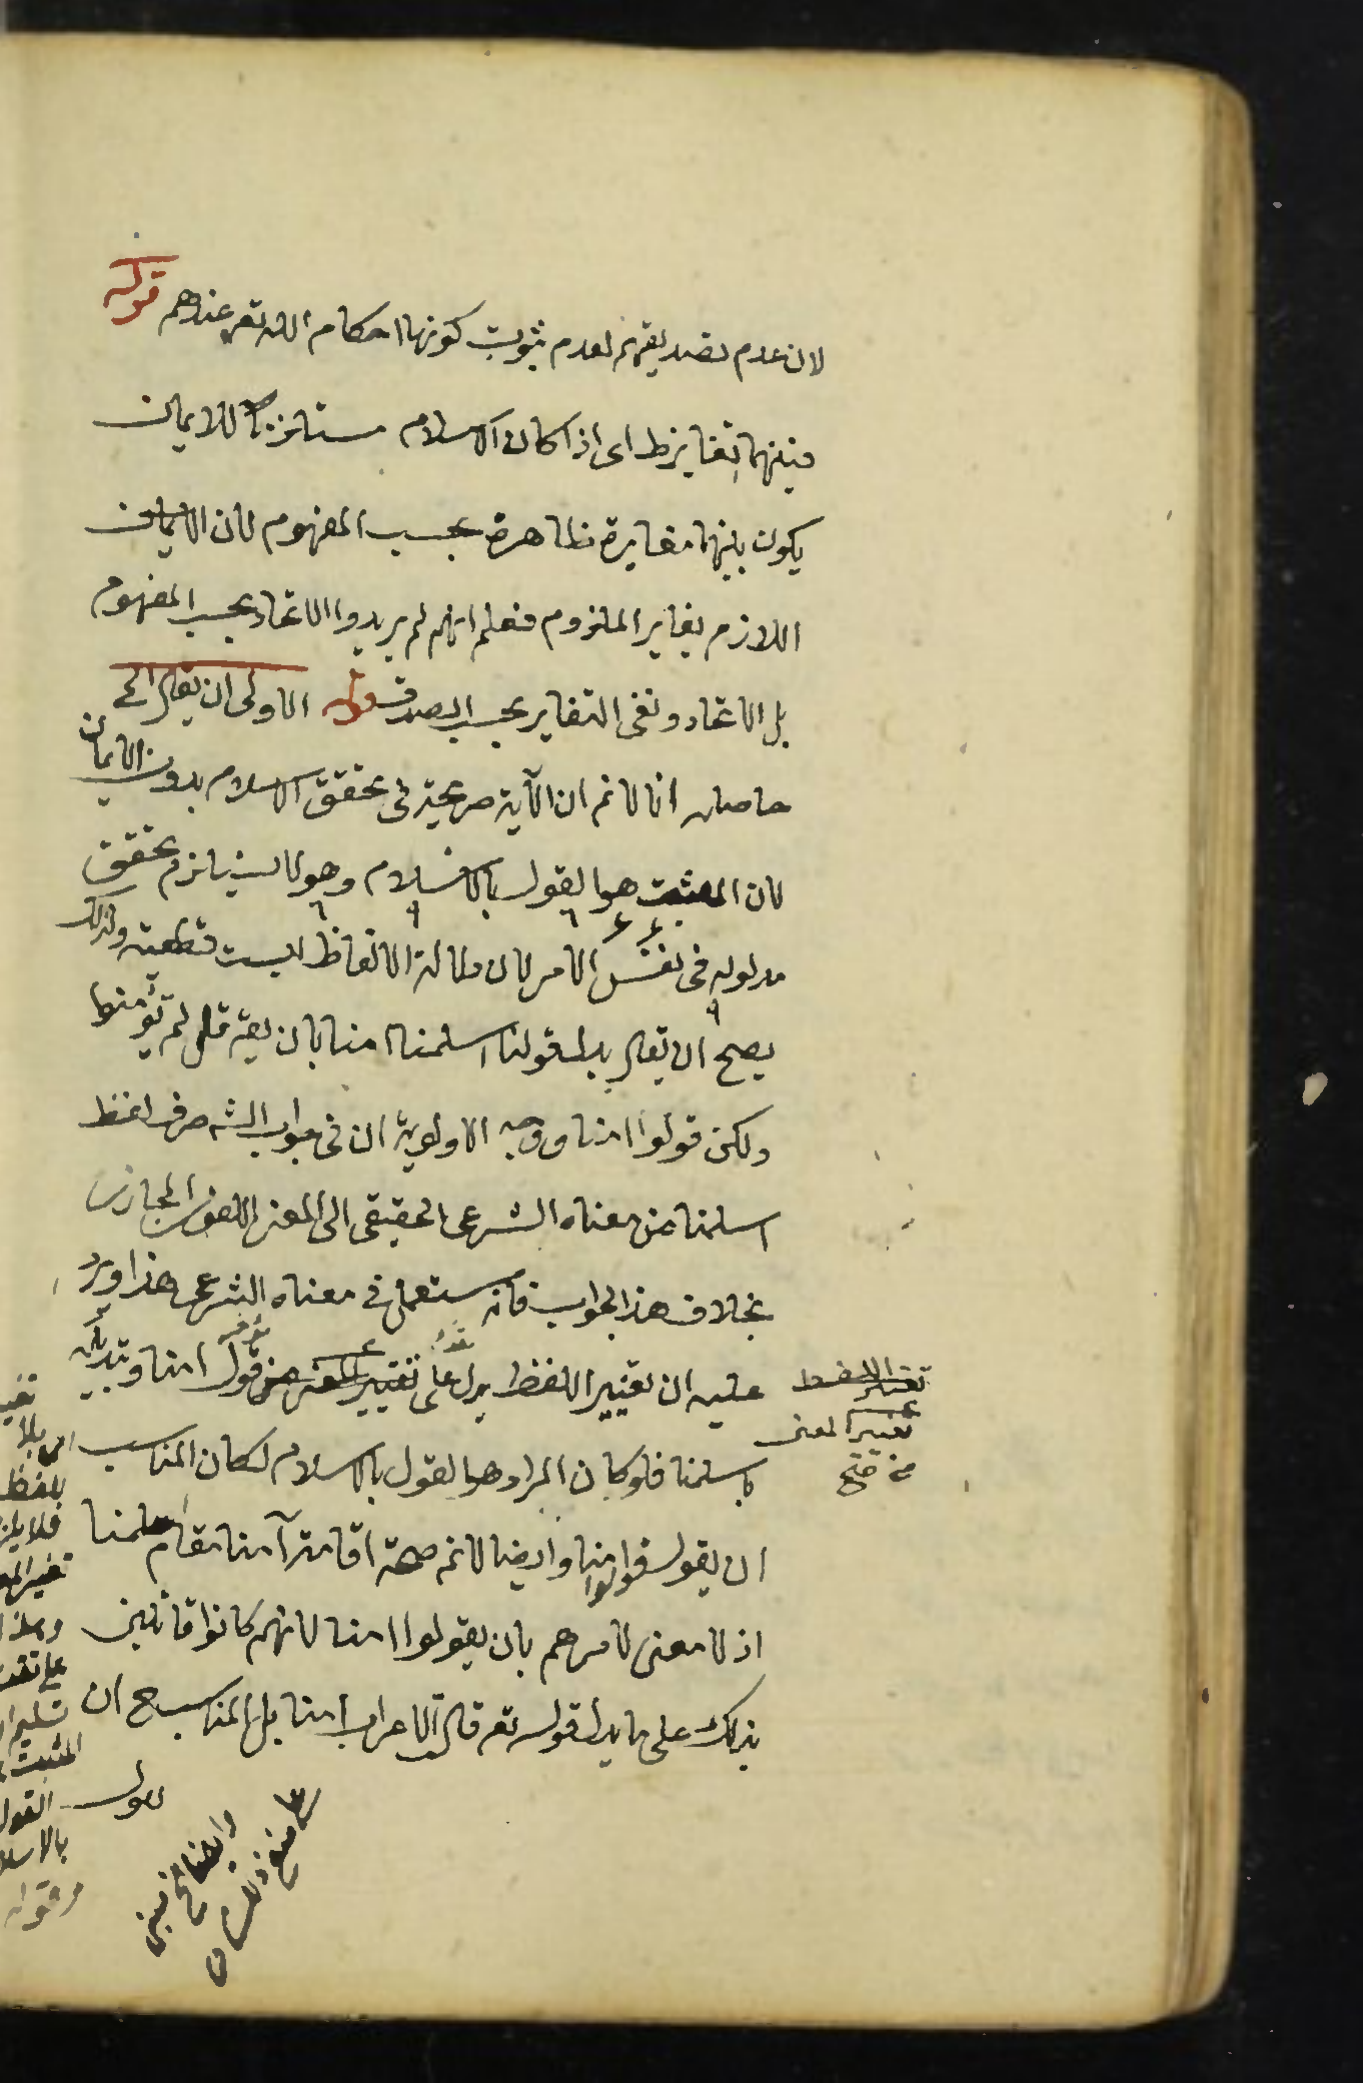 لان عدم تصديقهم لعدم ثبوت كونها احكام الله تعه عندهم قوله
فبينهما تغاير ظ اى اذا كان الاسلام مستلزما للايمان
يكون بينهما مغايرة ظاهرة بحسب المفهوم لان الايمان
اللازم يغاير الملزوم فعلم انهم لم يريدوا الاتحاد بحسب المفهوم
بل الاتحاد ونفى التغاير بحسب الصدق قوله الاولى ان يقال الخ
حاصله انا لا نم ان الآية صريحة فى تحقق الاسلام بدون الايمان
لان المثبت هو القول بالاسلام وهو لا يستلزم تحقق
مدلوله فى نفس الامر لان دلالة الالفاظ ليست قطعية ولذلك
يصح ان يقال بدل قولنا اسلمنا امنا بان يقه قل لم تؤمنوا
ولكن قولوا امنا ووجه الاولوية ان فى جواب الشه صرف لفظ
اسلمنا عن معناه الشرعى الحقيقى الى المعنى اللغوى المجازى
بخلاف هذا الجواب فانه مستعمل فى معناه الشرعى هذا ويرد
عليه ان تغيير اللفظ يدل على تغيير المعنى من قول امنا وتبديله
باسلمنا فلو كان المراد هو القول بالاسلام لكان المناسب
ان يقول قولوا امنا وايضا لا نم صحة اقامة آمنا مقام اسلمنا
اذ لا معنى لامرهم بان يقولوا امنا لانهم كانوا قائلين
بذلك على ما يدل قوله تعه قالت الاعراب امنا بل المناسب ح ان
يقول
تغيير اللفظ
تغيير المعنى
بلفظ
القول
وقوله